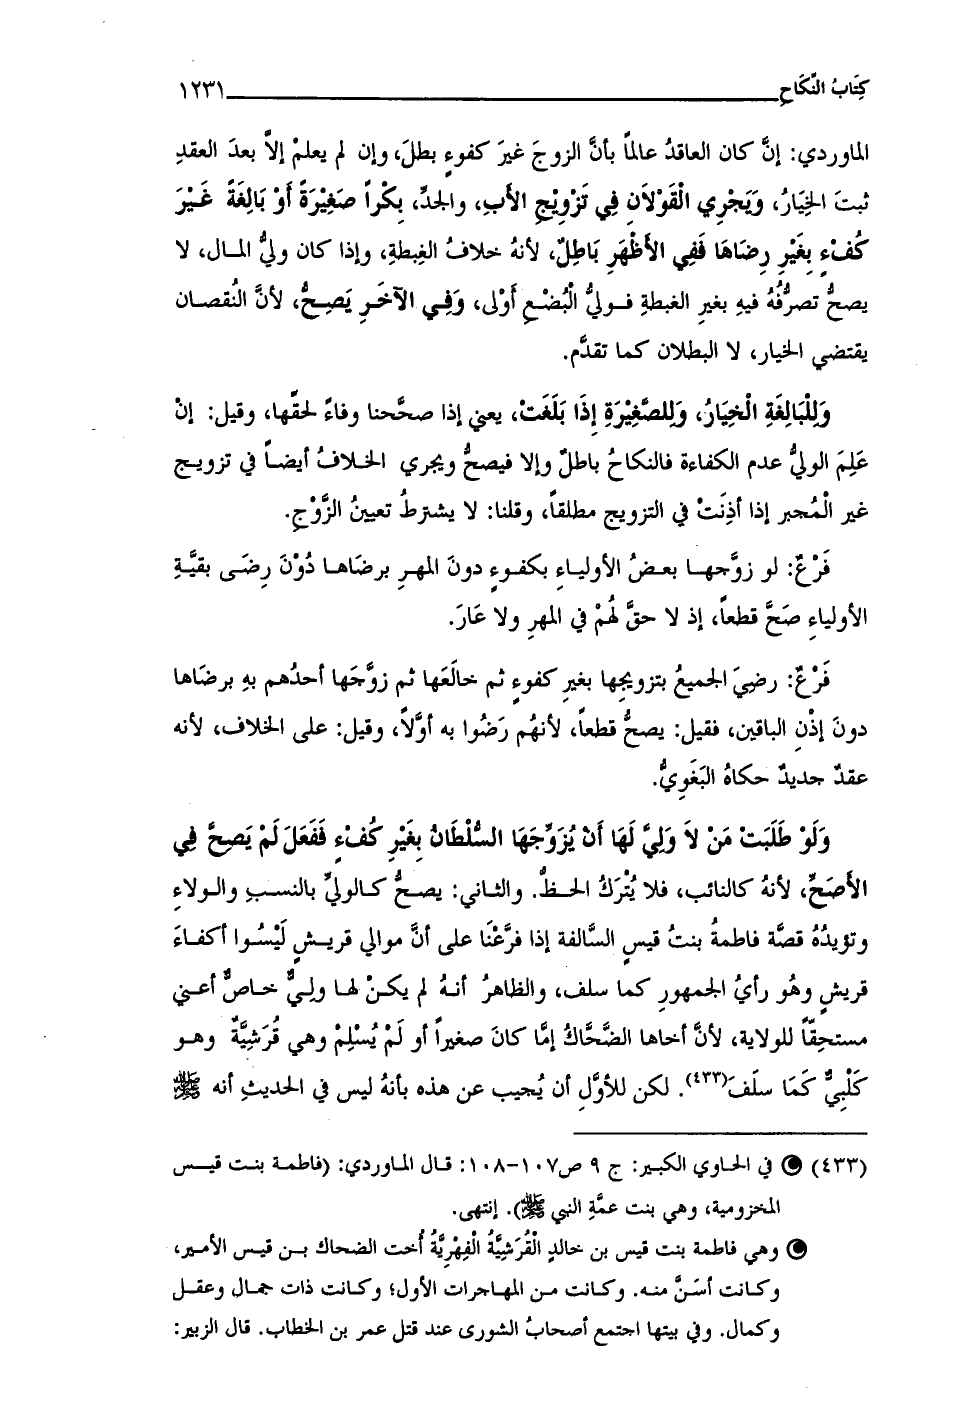 كِتَابُ النِّكَاحِ ١٢٣١
الماوردي: إنَّ كان العاقدُ عالماً بأنَّ الزوجَ غيرَ كفوءٍ بطلَ، وإن لم يعلمْ إلاَّ بعدَ العقدِ
ثبتَ الخِيَارُ، وَيَجْرِي الْقَوْلاَنِ فِي تَزْوِيْجِ الأَبِ، والجدِّ، بِكْراً صَغِيْرَةً أَوْ بَالِغَةً غَيْرَ
كُفْءٍ بِغَيْرِ رِضَاهَا فَفِي الأَظْهَرِ بَاطِلٌ، لأنهُ خلافُ الغِبطةِ، وإذا كان وليُّ المال، لا
يصحُّ تصرُّفُهُ فيهِ بغيرِ الغبطةِ فوليُّ الْبُضْعِ أَوْلى، وَفِي الآخَرِ يَصِحُّ، لأنَّ النُقصان
يقتضي الخيار، لا البطلان كما تقدَّم.
وَلِلْبَالِغَةِ الْخِيَارُ، وَلِلصَّغِيْرَةِ إِذَا بَلَغَتْ، يعني إذا صحَّحنا وفاءً لحقِّها، وقيل: إنْ
عَلِمَ الوليُّ عدم الكفاءة فالنكاحُ باطلٌ وإلا فيصحُّ ويجري الخلافُ أيضاً في تزويج
غير الْمُجبر إذا أذِنَتْ في التزويج مطلقاً، وقلنا: لا يشترطُ تعيينُ الزَّوْجِ.
فَرْعٌ: لو زوَّجها بعضُ الأولياءِ بكفوءٍ دونَ المهرِ برضاها دُوْنَ رِضَى بقيَّةِ
الأولياءِ صَحَّ قطعاً، إذ لا حقَّ لهُمْ في المهرِ ولا عَارَ.
فَرْعٌ: رضِيَ الجميعُ بتزويجِها بغيرِ كفوءٍ ثم خالَعَها ثم زوَّجَها أحدُهم بهِ برضَاها
دونَ إذْنِ الباقين، فقيل: يصحُّ قطعاً، لأنهُم رَضُوا به أوَّلاً، وقيل: على الخلاف، لأنه
عقدٌ جديدٌ حكاهُ البَغَوِيُّ.
وَلَوْ طَلَبَتْ مَنْ لاَ وَلِيَّ لَهَا أَنْ يُزَوِّجَهَا السُّلْطَانُ بِغَيْرِ كُفْءٍ فَفَعَلَ لَمْ يَصِحَّ فِي
الأَصَحِّ، لأنهُ كالنائب، فلا يُتْرَكُ الحظُّ. والثاني: يصحُّ كالوليِّ بالنسبِ والولاءِ
وتؤيدُهُ قصَّة فاطمةُ بنتُ قيسٍ السَّالفة إذا فرَّعْنَا على أنَّ موالي قريشٍ لَيْسُوا أكفاءَ
قريشٍ وهُو رأيُ الجمهورِ كما سلف، والظاهرُ أنهُ لم يكنْ لها ولِيٌّ خاصٌّ أعني
مستحِقّاً للولاية، لأنَّ أخاها الضَّحَّاكُ إمَّا كانَ صغيراً أو لَمْ يُسْلِمْ وهي قُرَشِيَّةٌ وهو
كَلْبِيٌّ كَمَا سلَفَ(٤٣٣). لكن للأوَّلِ أن يُجيب عن هذه بأنهُ ليس في الحديثِ أنه ﷺ
(٤٣٣) في الحاوي الكبير: ج ٩ ص١٠٧-١٠٨: قال الماوردي: (فاطمة بنت قيس
المخزومية، وهي بنت عمَّةِ النبي ﷺ). إنتهى.
وهي فاطمة بنت قيس بن خالدٍ الْقُرَشِيَّةُ الْفِهْرِيَّةُ أُخت الضحاك بن قيس الأمير،
وكانت أسَنَّ منه. وكانت من المهاجرات الأول؛ وكانت ذات جمال وعقل
وكمال. وفي بيتها اجتمع أصحابُ الشورى عند قتل عمر بن الخطاب. قال الزبير: